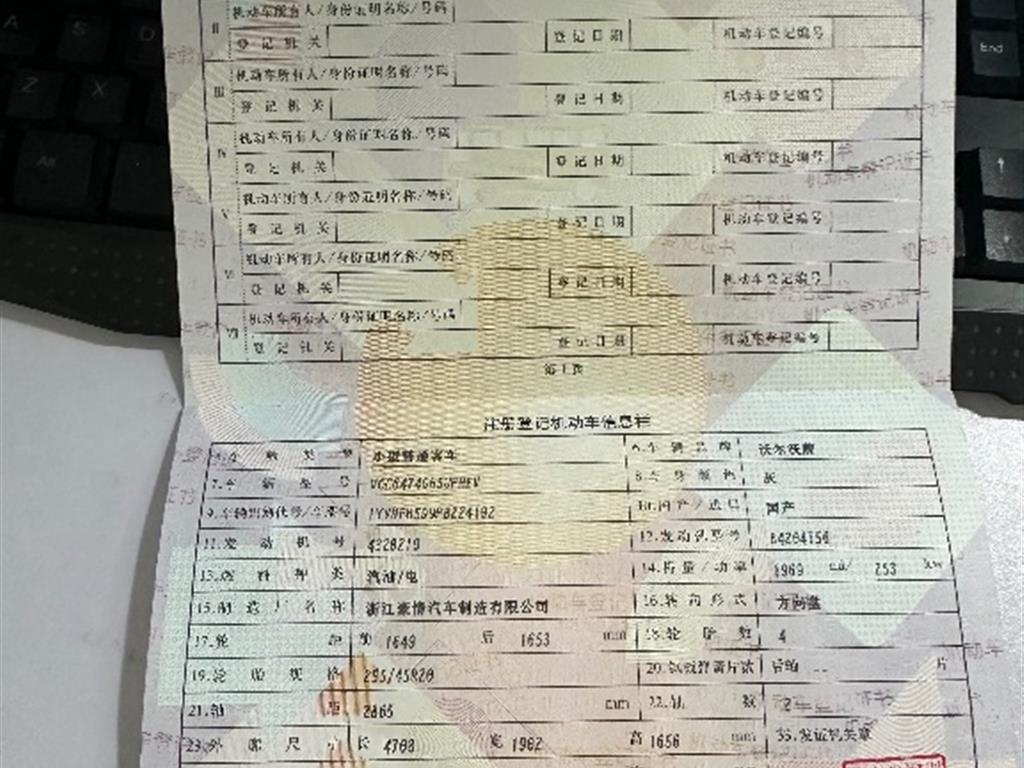 II 机动车所有人/身份证明名称/号码
登记机关 登记日期 机动车登记编号
III 机动车所有人/身份证明名称/号码
登记机关 登记日期 机动车登记编号
IV 机动车所有人/身份证明名称/号码
登记机关 登记日期 机动车登记编号
V 机动车所有人/身份证明名称/号码
登记机关 登记日期 机动车登记编号
VI 机动车所有人/身份证明名称/号码
登记机关 登记日期 机动车登记编号
VII 机动车所有人/身份证明名称/号码
登记机关 登记日期 机动车登记编号
第1页
注册登记机动车信息栏
5.车辆类型 小型普通客车 6.车辆品牌 沃尔沃牌
7.车辆型号 8.车身颜色 灰
9.车辆识别代号/车架号 10.国产/进口 国产
11.发动机号 4328210 12.发动机型号
13.燃料种类 汽油/电 14.排量/功率 1969 ml/ 253 kw
15.制造厂名称 浙江豪情汽车制造有限公司 16.转向形式 方向盘
17.轮距 前 1649 后 1653 mm 18.轮胎数 4
19.轮胎规格 20.钢板弹簧片数 后轴 -- 片
21.轴距 2865 mm 22.轴数 2
23.外廓尺寸 长 4708 宽 1902 高 1656 mm 33.发证机关章
End
Z
X
Alt
A
S
D
↑